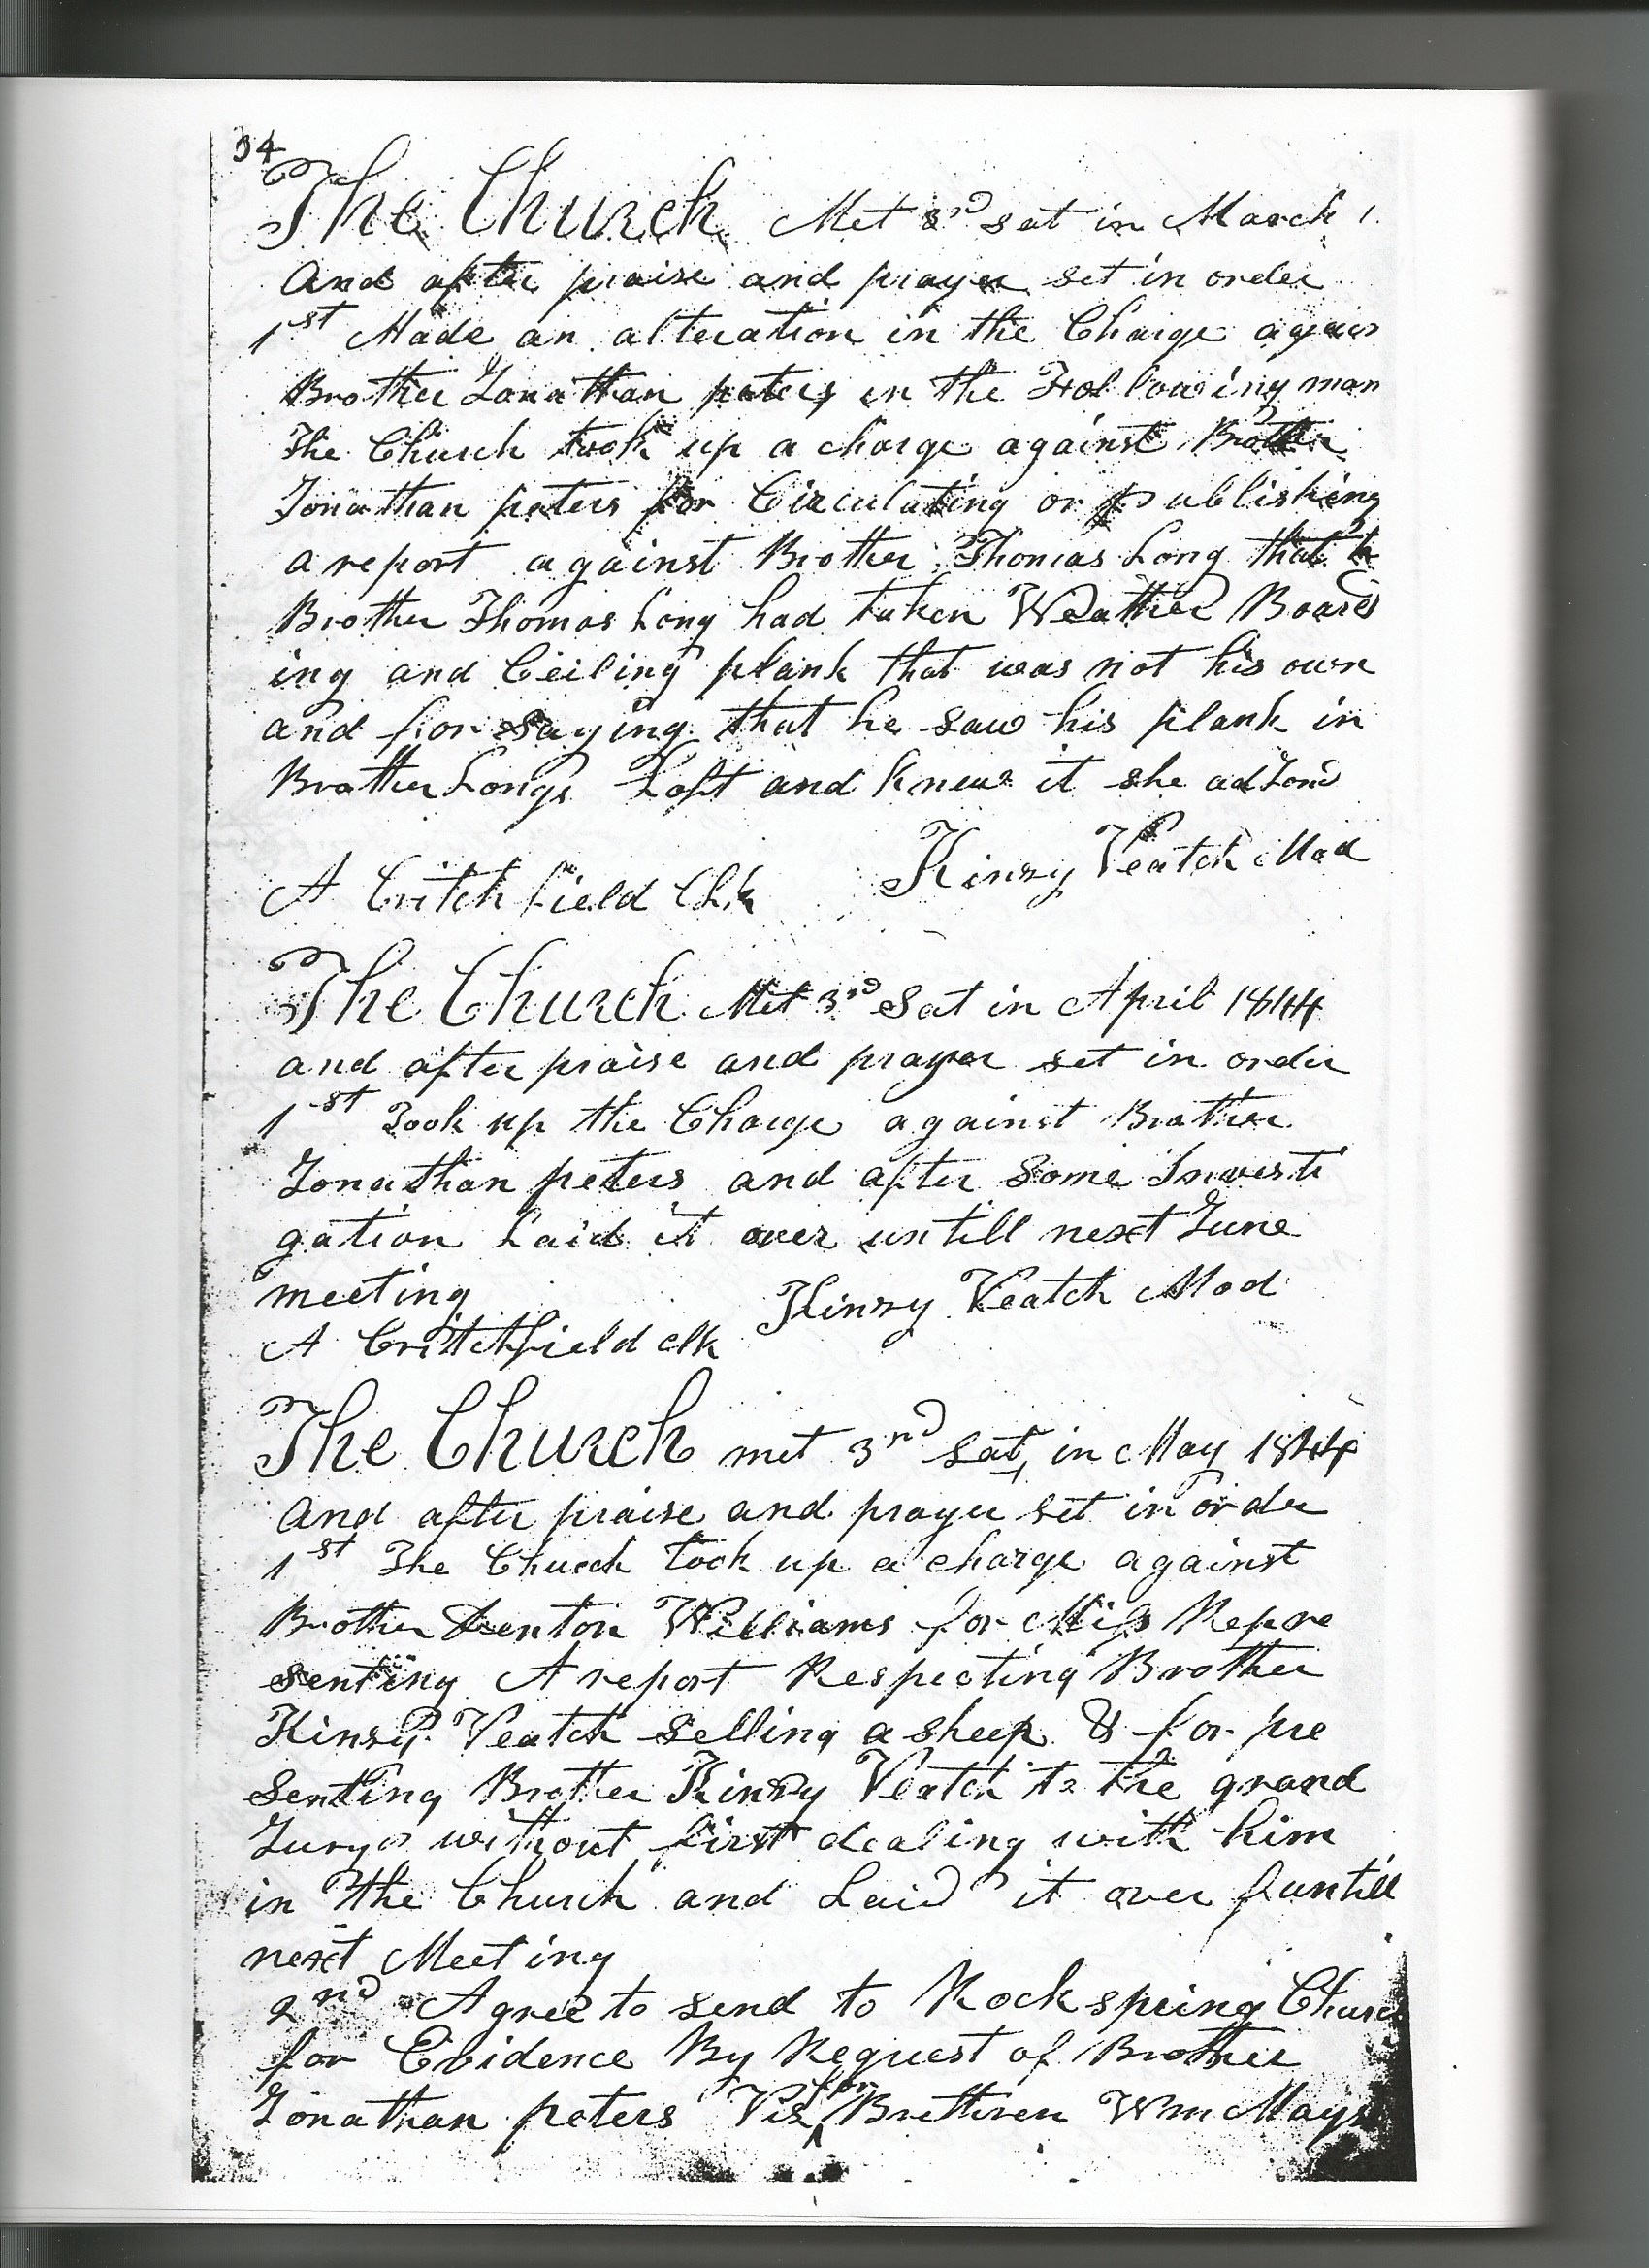 34
The Church Met 3rd sat in March 1
And after praise and prayer set in order
1st Made an alteration in the Charge agains
Brother Jonathan peters in the Following man
The Church took up a charge against Brother
Jonathan peters for Circulating or publishing
a report against Brother Thomas Long that
Brother Thomas Long had taken Weather Board
ing and Ceiling plank that was not his own
and for saying that he saw his plank in
Brother Longs Loft and Knew it she adJond
Kinzy Veatch Mod
A Critchfield Clk
The Church Met 3rd Sat in April 1844
and after praise and prayer set in order
1st Took up the Charge against Brother
Jonathan peters and after some Investi
gation Laid it over untill next June
meeting
Kinzy Veatch Mod
A Critchfield clk
The Church met 3rd Sat, in May 1844
And after praise and prayer set in order
1st The Church took up a charge against
Brother Denton Williams for Miss Repre
senting A report Respecting Brother
Kinzy Veatch selling a sheep & for pre
senting Brother Kinzy Veatch to the grand
Jury without first dealing with him
in the Church and Laid it over untill
next Meeting
2nd Agree to send to Rock spring Church
for Evidence By Request of Brother
Jonathan peters Viz for Brethren Wm Mays